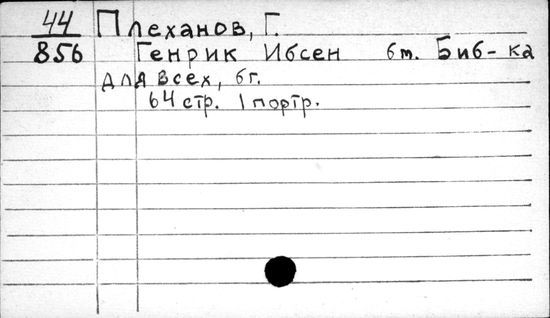 44 Плеханов, Г.
856 Генрик Ибсен б т. Биб-ка
для всех, б г.
64 стр. 1 портр.